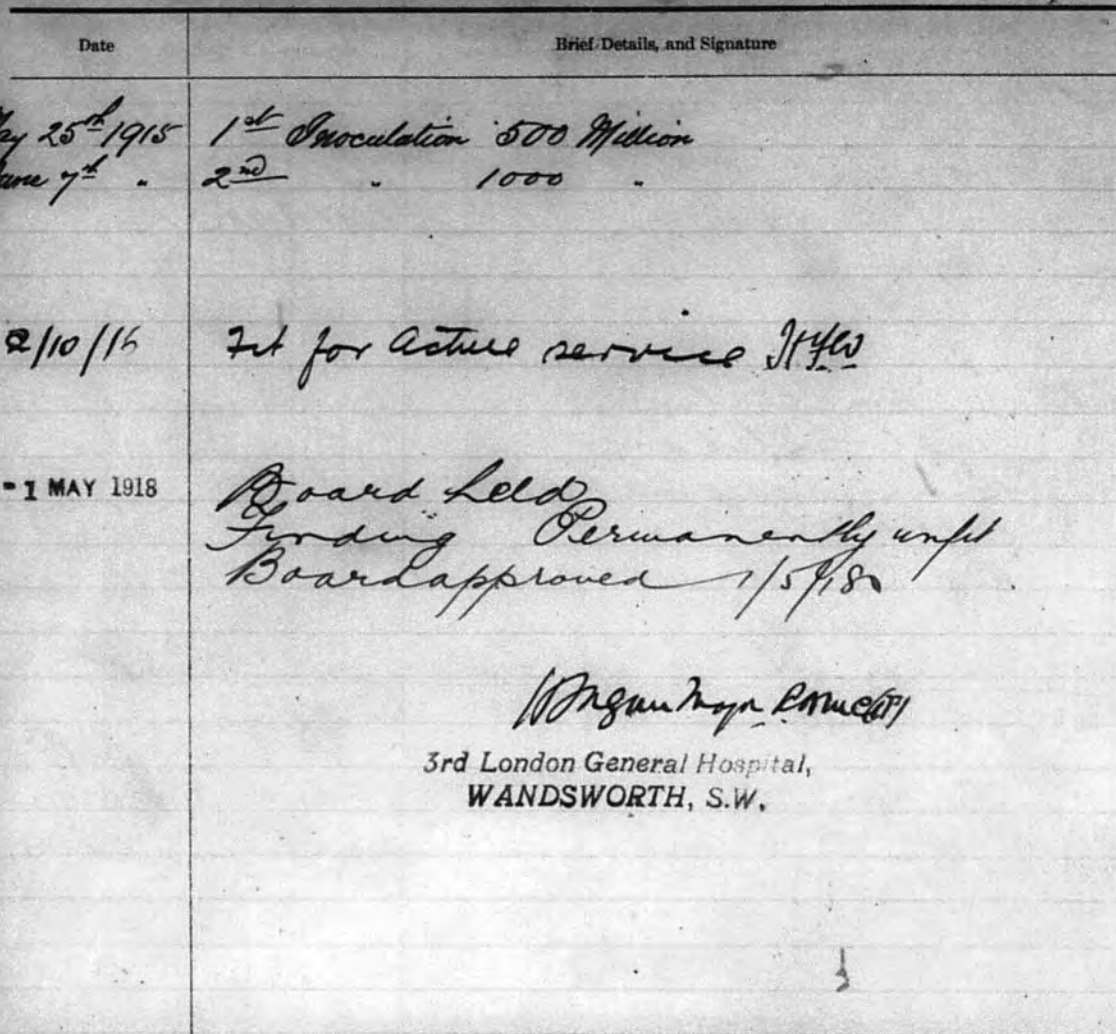 Date Brief Details, and Signature
25th 1915 1st Inoculation 500 Million
June 7th " 2nd " 1000 "
2/10/16 Fit for active service
- 1 MAY 1918 Board held
Finding Permanently unfit
Board approved 1/5/18
Major R.A.M.C.(T)
3rd London General Hospital,
WANDSWORTH, S.W.